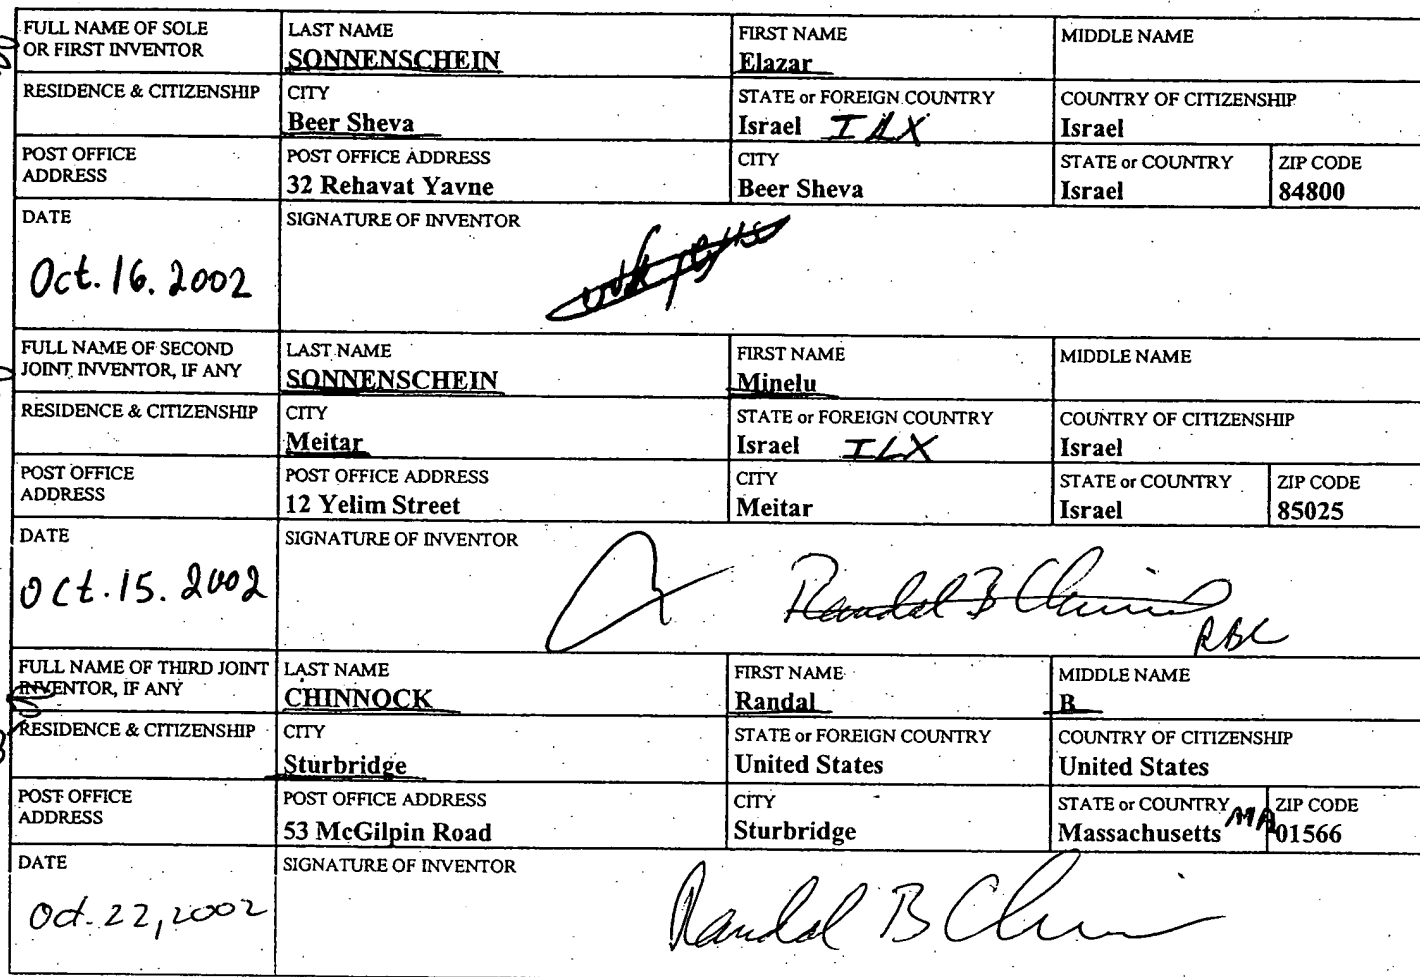 FULL NAME OF SOLE OR FIRST INVENTOR LAST NAME SONNENSCHEIN FIRST NAME Elazar MIDDLE NAME
RESIDENCE & CITIZENSHIP CITY Beer Sheva STATE or FOREIGN COUNTRY Israel ILX COUNTRY OF CITIZENSHIP Israel
POST OFFICE ADDRESS POST OFFICE ADDRESS 32 Rehavat Yavne CITY Beer Sheva STATE or COUNTRY Israel ZIP CODE 84800
DATE Oct. 16. 2002 SIGNATURE OF INVENTOR
FULL NAME OF SECOND JOINT INVENTOR, IF ANY LAST NAME SONNENSCHEIN FIRST NAME Minelu MIDDLE NAME
RESIDENCE & CITIZENSHIP CITY Meitar STATE or FOREIGN COUNTRY Israel ILX COUNTRY OF CITIZENSHIP Israel
POST OFFICE ADDRESS POST OFFICE ADDRESS 12 Yelim Street CITY Meitar STATE or COUNTRY Israel ZIP CODE 85025
DATE Oct. 15. 2002 SIGNATURE OF INVENTOR Randal B RBC
FULL NAME OF THIRD JOINT INVENTOR, IF ANY LAST NAME CHINNOCK FIRST NAME Randal MIDDLE NAME B.
RESIDENCE & CITIZENSHIP CITY Sturbridge STATE or FOREIGN COUNTRY United States COUNTRY OF CITIZENSHIP United States
POST OFFICE ADDRESS POST OFFICE ADDRESS 53 McGilpin Road CITY Sturbridge STATE or COUNTRY Massachusetts MA ZIP CODE 01566
DATE Oct. 22, 2002 SIGNATURE OF INVENTOR Randal B